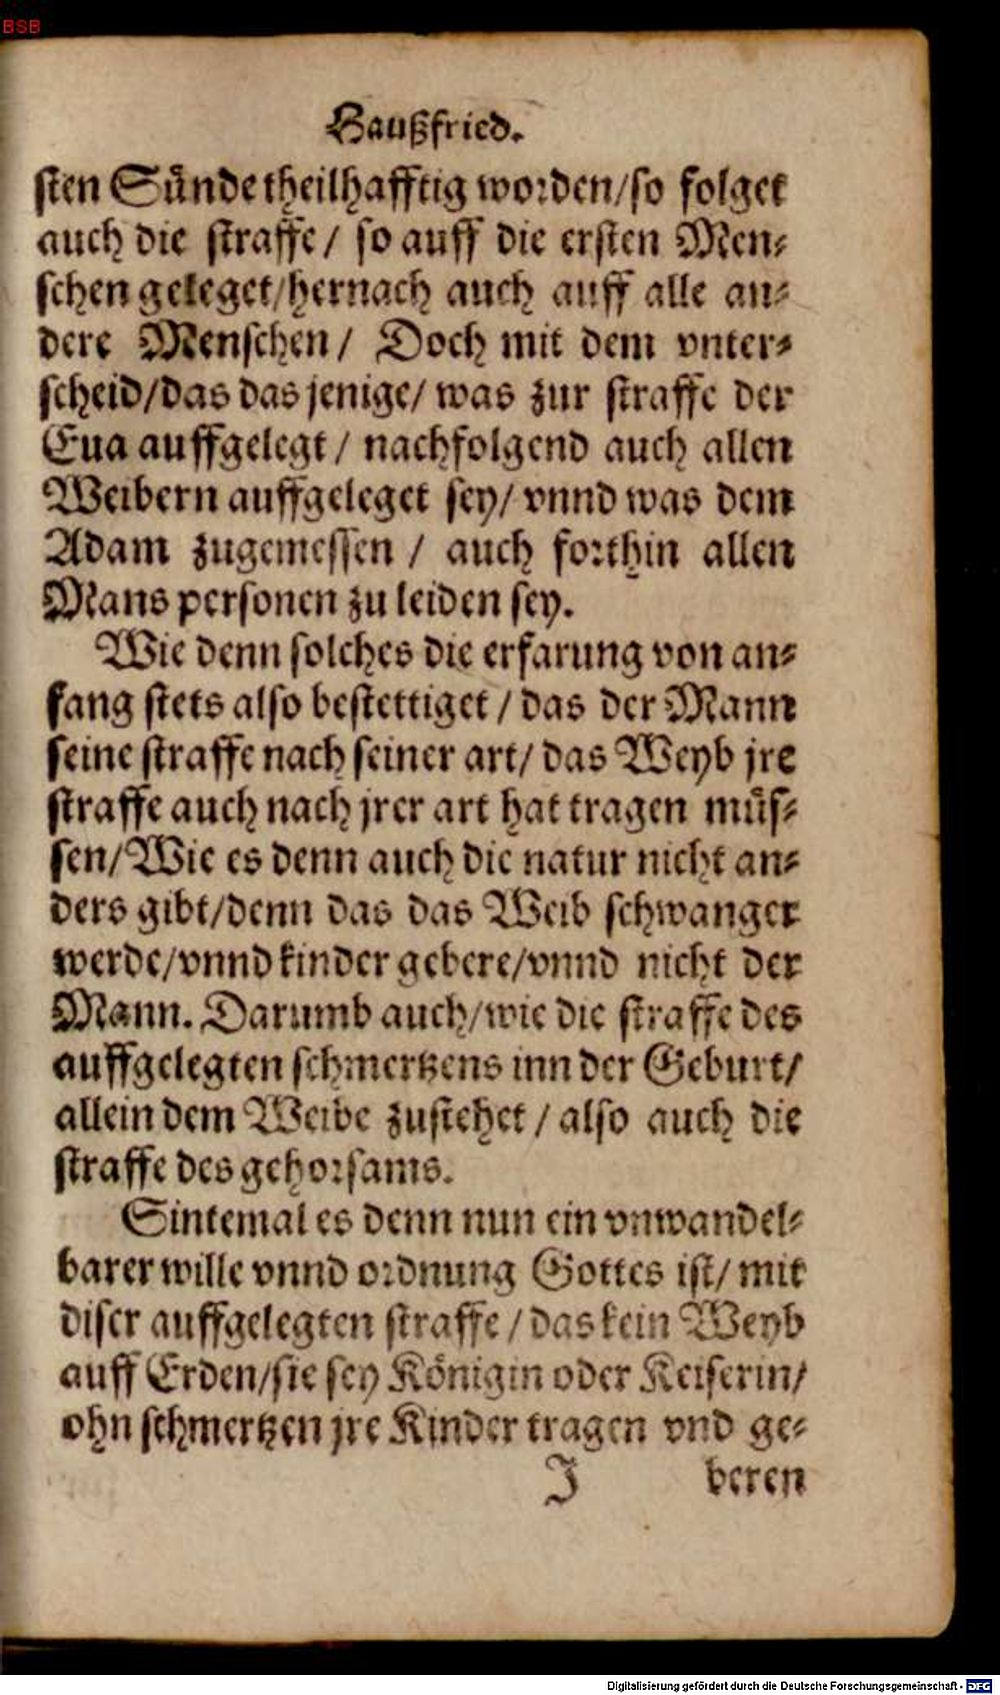 BSB
Haußfried.
sten Sünde theilhafftig worden/so folget
auch die straffe / so auff die ersten Men-
schen geleget/hernach auch auff alle an-
dere Menschen / Doch mit dem vnter-
scheid/das das jenige/ was zur straffe der
Eua auffgelegt / nachfolgend auch allen
Weibern auffgeleget sey/ vnnd was dem
Adam zugemessen / auch forthin allen
Mans personen zu leiden sey.
Wie denn solches die erfarung von an-
fang stets also bestettiget / das der Mann
seine straffe nach seiner art/ das Weyb jre
straffe auch nach jrer art hat tragen müs-
sen/Wie es denn auch die natur nicht an-
ders gibt/denn das das Weib schwanger
werde/vnnd kinder gebere/vnnd nicht der
Mann. Darumb auch/wie die straffe des
auffgelegten schmertzens inn der Geburt/
allein dem Weibe zustehet / also auch die
straffe des gehorsams.
Sintemal es denn nun ein vnwandel-
barer wille vnnd ordnung Gottes ist/ mit
diser auffgelegten straffe / das kein Weyb
auff Erden/sie sey Königin oder Keiserin/
ohn schmertzen jre Kinder tragen vnd ge-
J beren
Digitalisierung gefördert durch die Deutsche Forschungsgemeinschaft - DFG